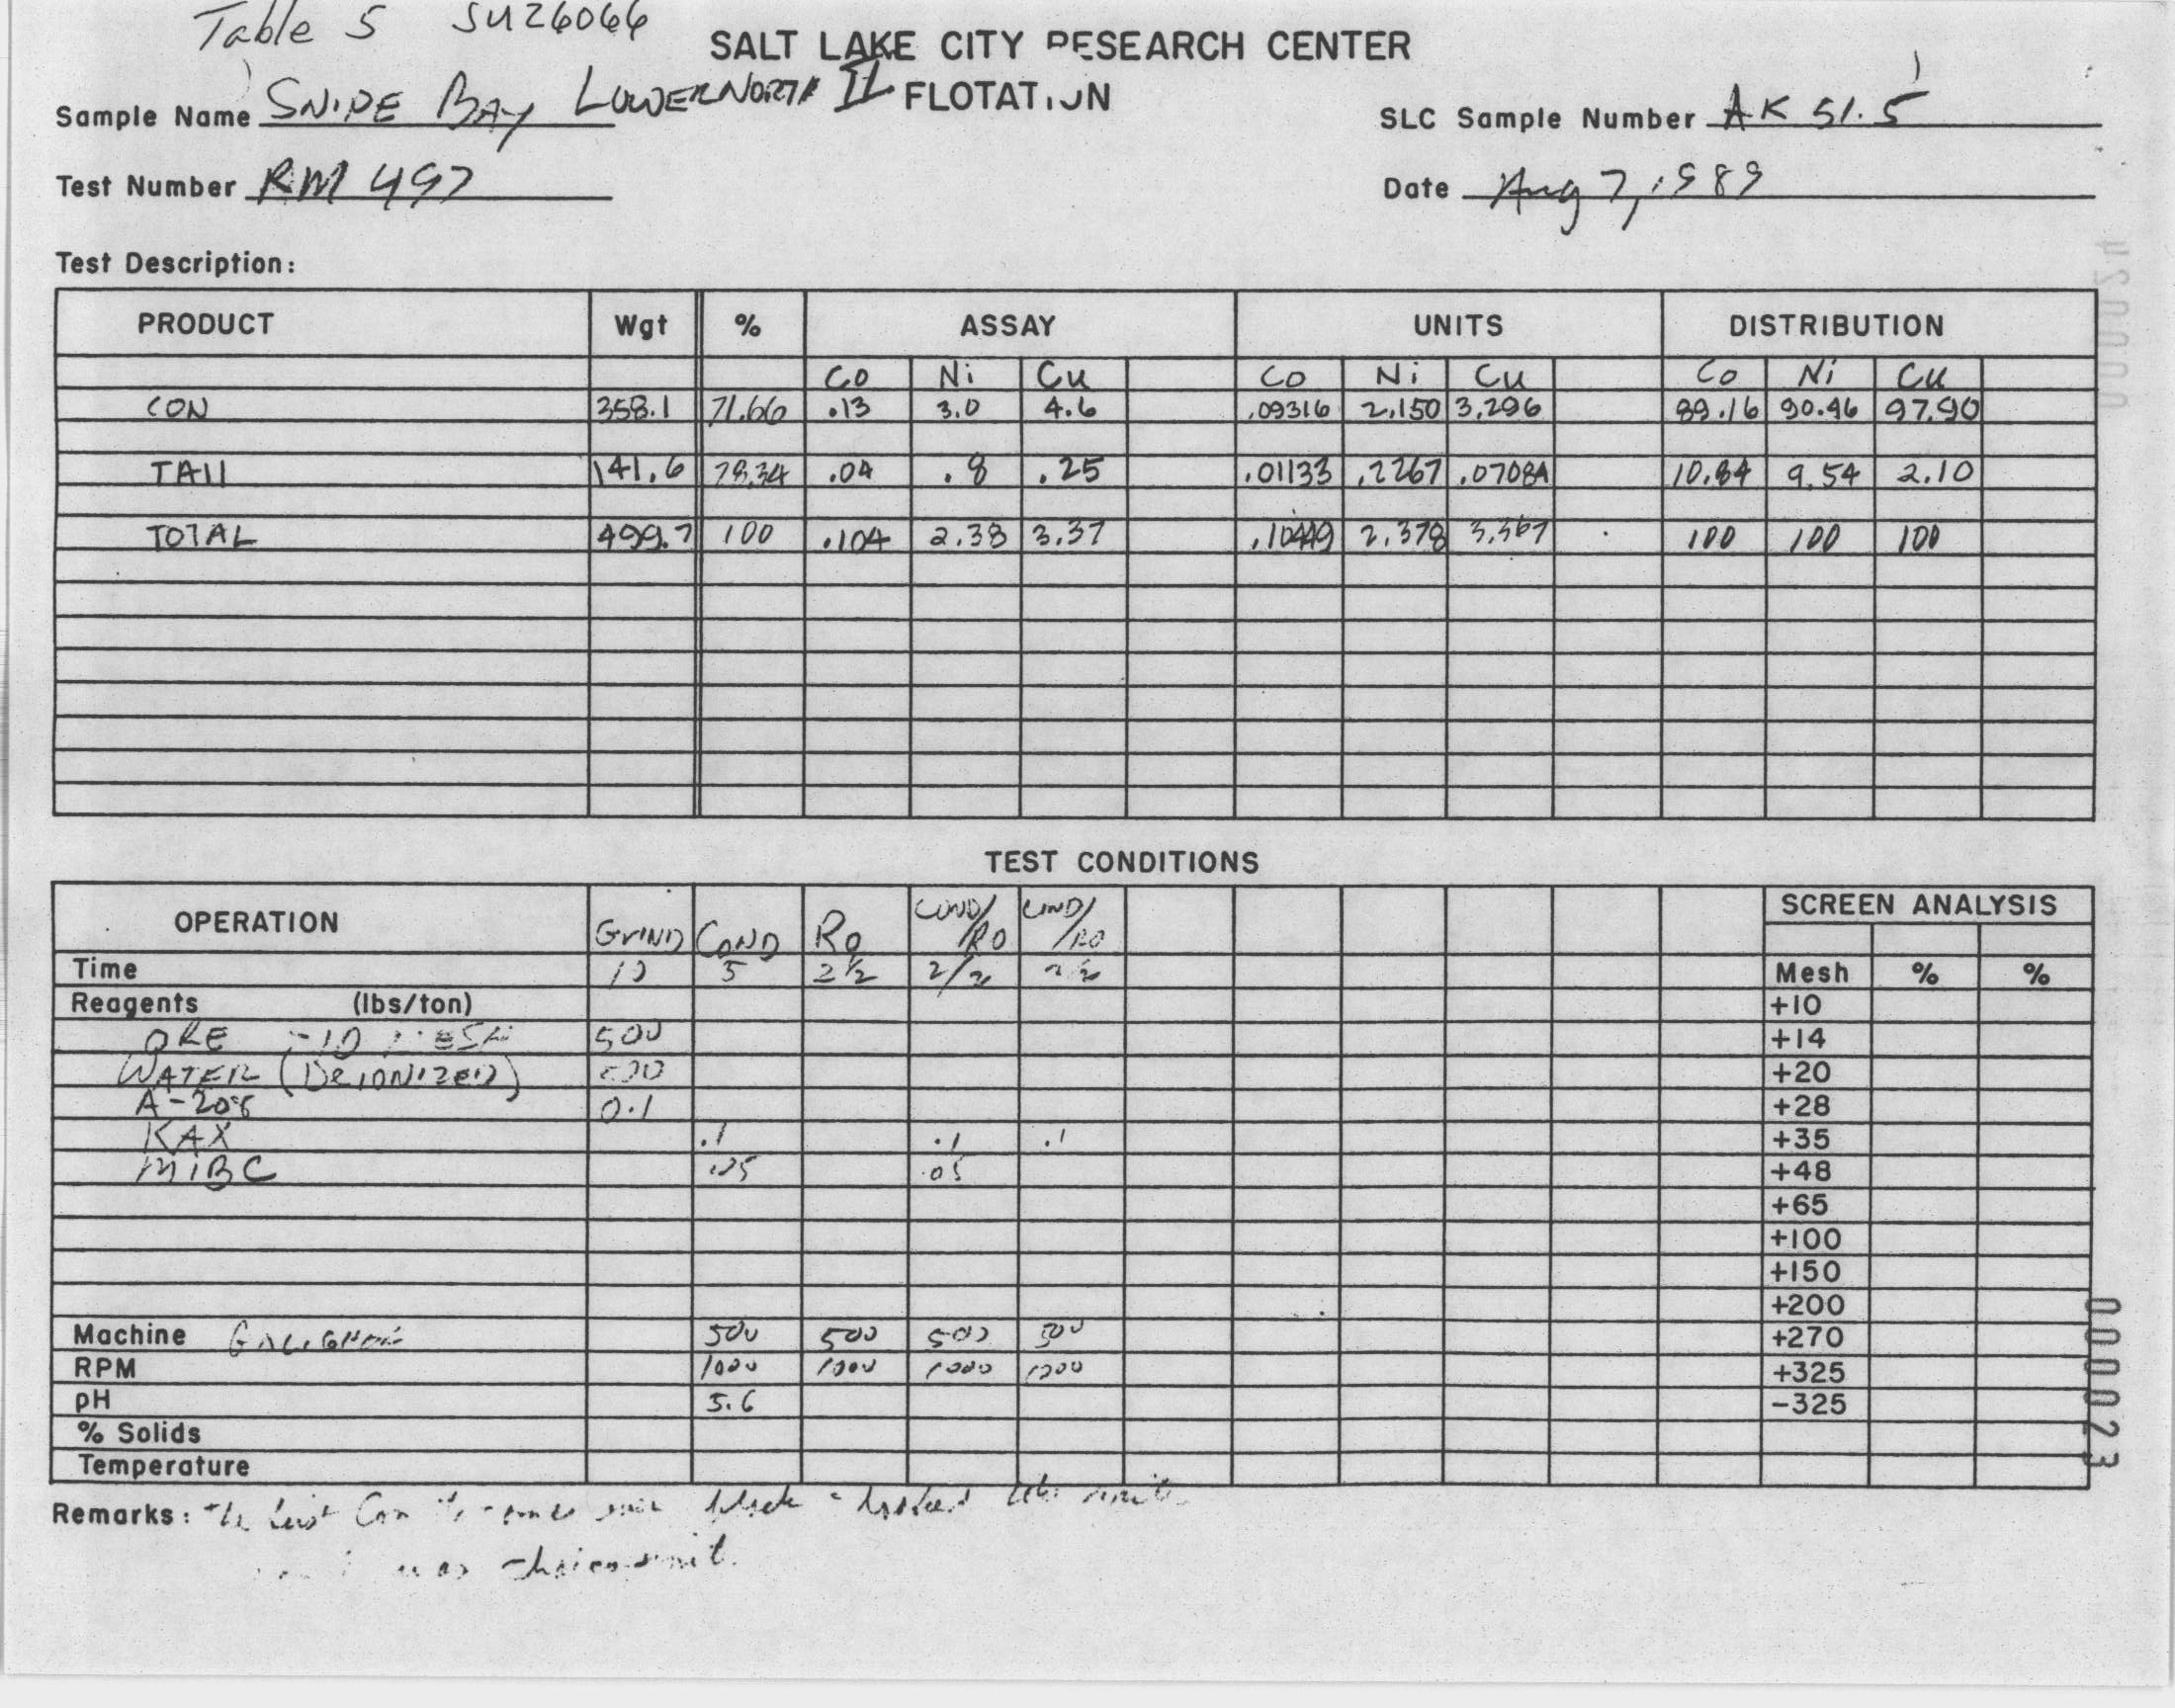 Table 5 SU26066
SALT LAKE CITY RESEARCH CENTER
FLOTATION
Sample Name SNIPE BAY LOWER NORTH II
SLC Sample Number AK 51.5
Test Number RM 497
Date Aug 7, 1989
Test Description:
PRODUCT Wgt % ASSAY UNITS DISTRIBUTION
Co Ni Cu Co Ni Cu Co Ni Cu
CON 358.1 71.66 .13 3.0 4.6 .09316 2.150 3.296 89.16 90.46 97.90
TAIL 141.6 28.34 .04 .8 .25 .01133 .2267 .07084 10.84 9.54 2.10
TOTAL 499.7 100 .104 2.38 3.37 .10449 2.378 3.367 100 100 100
TEST CONDITIONS
OPERATION GRIND COND RO COND/RO COND/RO SCREEN ANALYSIS
Time 10 5 2 1/2 2/2 2/2 Mesh % %
Reagents (lbs/ton) +10
ORE -10 MESH 500 +14
WATER (DEIONIZED) 500 +20
A-208 0.1 +28
KAX .1 .1 .1 +35
MIBC .05 .05 +48
+65
+100
+150
+200
Machine 500 500 500 500 +270
RPM 1000 1000 1000 1200 +325
pH 5.6 -325
% Solids
Temperature
Remarks: the last Con black - looked like
was
000023